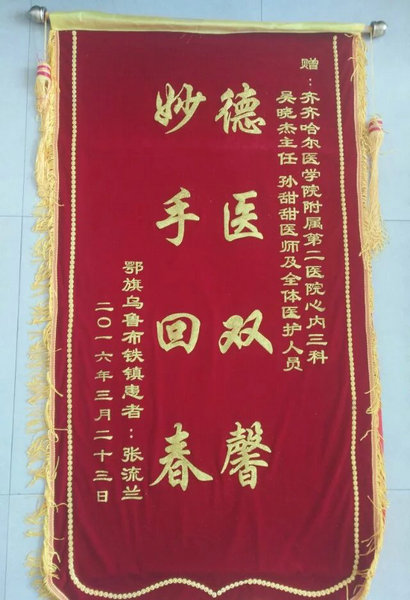 赠：齐齐哈尔医学院附属第二医院心内三科
吴晓杰主任 孙甜甜医师及全体医护人员
德医双馨
妙手回春
鄂旗乌鲁布铁镇患者：张流兰
二〇一六年三月二十三日